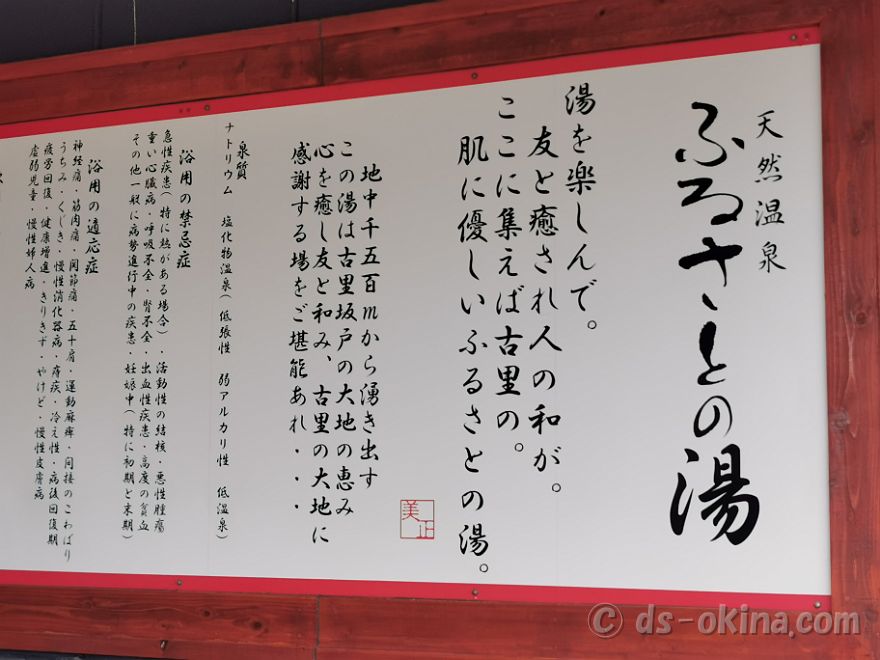 天然温泉
ふるさとの湯
湯を楽しんで。
友と癒され人の和が。
ここに集えば古里の。
肌に優しいふるさとの湯。
美正
地中千五百mから湧き出す
この湯は古里坂戸の大地の恵み
心を癒し友と和み、古里の大地に
感謝する場をご堪能あれ・・・
泉質
ナトリウム 塩化物温泉(低張性 弱アルカリ性 低温泉)
浴用の禁忌症
急性疾患(特に熱がある場合)・活動性の結核・悪性腫瘍
重い心臓病・呼吸不全・腎不全・出血性疾患・高度の貧血
その他一般に病勢進行中の疾患・妊娠中(特に初期と末期)
浴用の適応症
神経痛・筋肉痛・関節痛・五十肩・運動麻痺・間接のこわばり
うちみ・くじき・慢性消化器病・痔疾・冷え性・病後回復期
疲労回復・健康増進・きりきず・やけど・慢性皮膚病
虚弱児童・慢性婦人病
© ds-okina.com